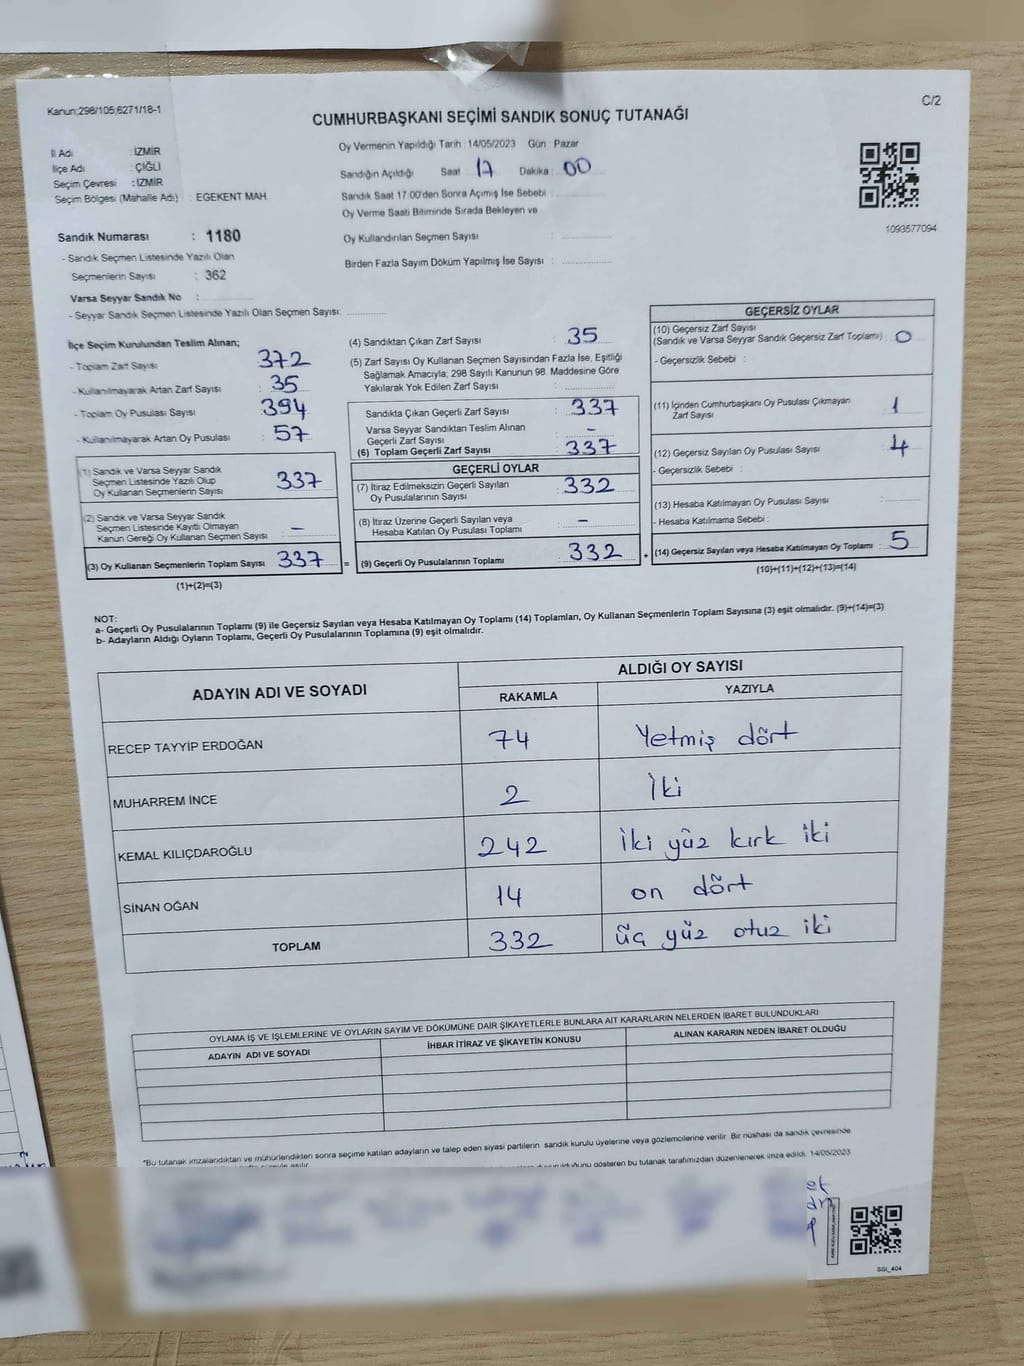 Kanun;298/105;6271/18-1
C/2
CUMHURBAŞKANI SEÇİMİ SANDIK SONUÇ TUTANAĞI
İl Adı : İZMİR
İlçe Adı : ÇİĞLİ
Seçim Çevresi : İZMİR
Seçim Bölgesi (Mahalle Adı) : EGEKENT MAH
Oy Vermenin Yapıldığı Tarih : 14/05/2023 Gün : Pazar
Sandığın Açıldığı Saat : 17 Dakika : 00
Sandık Saat 17.00'den Sonra Açımış İse Sebebi :
Oy Verme Saati Bitiminde Sırada Bekleyen ve
Oy Kullandırılan Seçmen Sayısı :
Birden Fazla Sayım Döküm Yapılmış İse Sayısı :
1093577094
Sandık Numarası : 1180
- Sandık Seçmen Listesinde Yazılı Olan
Seçmenlerin Sayısı : 362
Varsa Seyyar Sandık No :
- Seyyar Sandık Seçmen Listesinde Yazılı Olan Seçmen Sayısı:
İlçe Seçim Kurulundan Teslim Alınan;
- Toplam Zarf Sayısı : 372
- Kullanılmayarak Artan Zarf Sayısı : 35
- Toplam Oy Pusulası Sayısı : 394
- Kullanılmayarak Artan Oy Pusulası : 57
(1) Sandık ve Varsa Seyyar Sandık
Seçmen Listesinde Yazılı Olup
Oy Kullanan Seçmenlerin Sayısı : 337
(2) Sandık ve Varsa Seyyar Sandık
Seçmen Listesinde Kayıtlı Olmayan
Kanun Gereği Oy Kullanan Seçmen Sayısı : -
(3) Oy Kullanan Seçmenlerin Toplam Sayısı : 337 =
(1)+(2)=(3)
(4) Sandıktan Çıkan Zarf Sayısı : 35
(5) Zarf Sayısı Oy Kullanan Seçmen Sayısından Fazla İse, Eşitliği
Sağlamak Amacıyla, 298 Sayılı Kanunun 98. Maddesine Göre
Yakılarak Yok Edilen Zarf Sayısı :
Sandıkta Çıkan Geçerli Zarf Sayısı : 337
Varsa Seyyar Sandıktan Teslim Alınan
Geçerli Zarf Sayısı : -
(6) Toplam Geçerli Zarf Sayısı : 337
GEÇERLİ OYLAR
(7) İtiraz Edilmeksizin Geçerli Sayılan
Oy Pusulalarının Sayısı : 332
(8) İtiraz Üzerine Geçerli Sayılan veya
Hesaba Katılan Oy Pusulası Toplamı : -
(9) Geçerli Oy Pusulalarının Toplamı : 332 +
GEÇERSİZ OYLAR
(10) Geçersiz Zarf Sayısı
(Sandık ve Varsa Seyyar Sandık Geçersiz Zarf Toplamı) : 0
- Geçersizlik Sebebi :
(11) İçinden Cumhurbaşkanı Oy Pusulası Çıkmayan
Zarf Sayısı : 1
(12) Geçersiz Sayılan Oy Pusulası Sayısı : 4
- Geçersizlik Sebebi :
(13) Hesaba Katılmayan Oy Pusulası Sayısı :
- Hesaba Katılmama Sebebi :
(14) Geçersiz Sayılan veya Hesaba Katılmayan Oy Toplamı : 5
(10)+(11)+(12)+(13)=(14)
NOT:
a- Geçerli Oy Pusulalarının Toplamı (9) ile Geçersiz Sayılan veya Hesaba Katılmayan Oy Toplamı (14) Toplamları, Oy Kullanan Seçmenlerin Toplam Sayısına (3) eşit olmalıdır. (9)+(14)=(3)
b- Adayların Aldığı Oyların Toplamı, Geçerli Oy Pusulalarının Toplamına (9) eşit olmalıdır.
ADAYIN ADI VE SOYADI ALDIĞI OY SAYISI
RAKAMLA YAZIYLA
RECEP TAYYİP ERDOĞAN 74 Yetmiş dört
MUHARREM İNCE 2 İki
KEMAL KILIÇDAROĞLU 242 İki yüz kırk iki
SİNAN OĞAN 14 on dört
TOPLAM 332 üç yüz otuz iki
OYLAMA İŞ VE İŞLEMLERİNE VE OYLARIN SAYIM VE DÖKÜMÜNE DAİR ŞİKAYETLERLE BUNLARA AİT KARARLARIN NELERDEN İBARET BULUNDUKLARI
ADAYIN ADI VE SOYADI İHBAR İTİRAZ VE ŞİKAYETİN KONUSU ALINAN KARARIN NEDEN İBARET OLDUĞU
*Bu tutanak imzalandıktan ve mühürlendikten sonra seçime katılan adayların ve talep eden siyasi partilerin sandık kurulu üyelerine veya gözlemcilerine verilir. Bir nüshası da sandık çevresinde
gösteren bu tutanak tarafımızdan düzenlenerek imza edildi. 14/05/2023
SSI_404